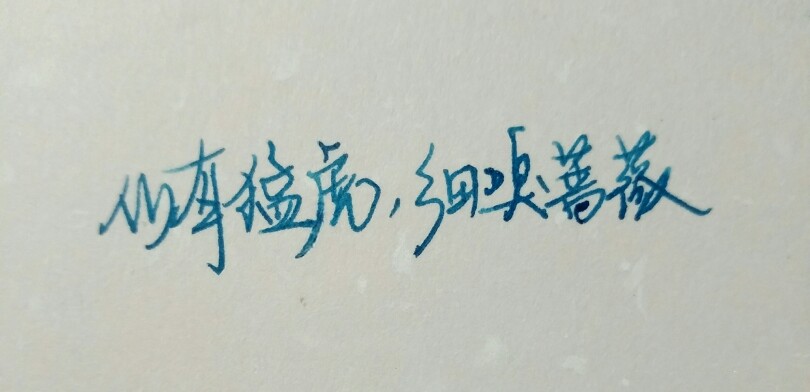 心有猛虎，细嗅蔷薇